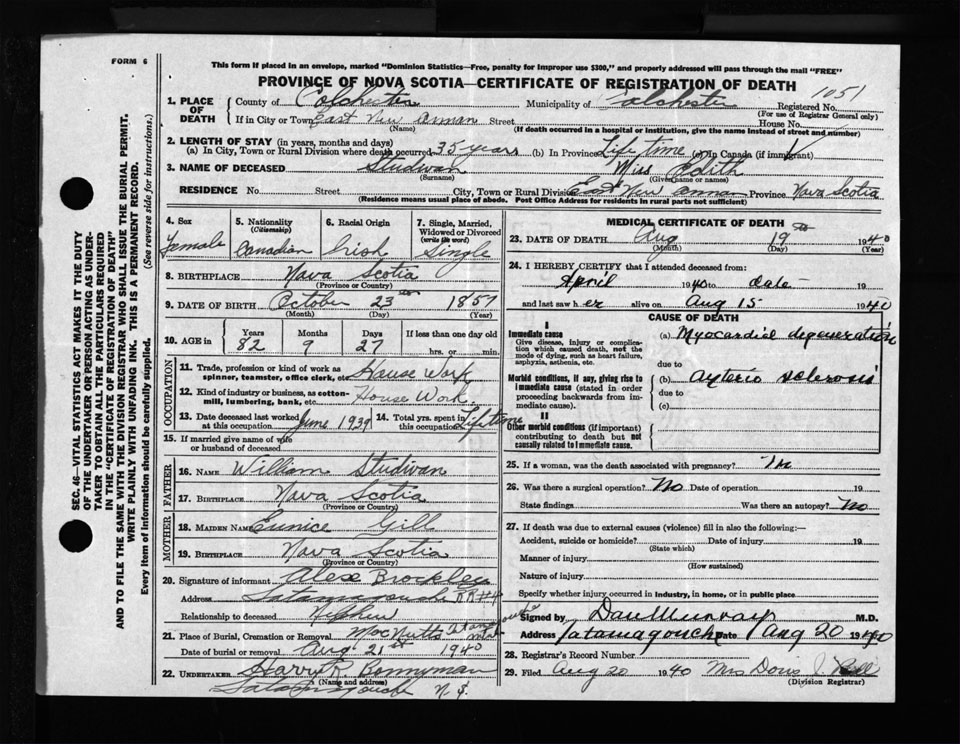 FORM 6
This form if placed in an envelope, marked "Dominion Statistics—Free, penalty for improper use $300," and properly addressed will pass through the mail "FREE"
PROVINCE OF NOVA SCOTIA—CERTIFICATE OF REGISTRATION OF DEATH
1051
1. PLACE OF DEATH
County of Colchester Municipality of Colchester Registered No.
(For use of Registrar General only)
If in City or Town East New Annan Street House No.
(Name) (If death occurred in a hospital or institution, give the name instead of street and number)
2. LENGTH OF STAY (in years, months and days)
(a) In City, Town or Rural Division where death occurred 35 years (b) In Province Life time (c) In Canada (if immigrant)
3. NAME OF DECEASED Studivan Miss Edith
(Surname) (Given name or names)
RESIDENCE No. Street City, Town or Rural Division East New Annan Province Nova Scotia
(Residence means usual place of abode. Post Office Address for residents in rural parts not sufficient)
4. Sex, Female
5. Nationality (Citizenship) Canadian
6. Racial Origin Irish
7. Single, Married, Widowed or Divorced (write the word) Single
8. BIRTHPLACE Nova Scotia
(Province or Country)
9. DATE OF BIRTH October 23 1857
(Month) (Day) (Year)
10. AGE Years Months Days If less than one day old
82 9 27 hrs. or min.
OCCUPATION
11. Trade, profession or kind of work as spinner, teamster, office clerk, etc. House Work
12. Kind of industry or business, as cotton-mill, lumbering, bank, etc. House Work
13. Date deceased last worked at this occupation June 1939
14. Total yrs. spent in this occupation Lifetime
15. If married give name of wife or husband of deceased
FATHER
16. NAME William Studivan
17. BIRTHPLACE Nova Scotia
(Province or Country)
MOTHER
18. MAIDEN NAME Eunice Gill
19. BIRTHPLACE Nova Scotia
(Province or Country)
20. Signature of informant Alex Brockley
Address Tatamagouche RR#4
Relationship to deceased Nephew
21. Place of Burial, Cremation or Removal MacNutts
Date of burial or removal Aug 21st 1940
22. UNDERTAKER Harry R. Bonnyman
(Name and address)
Tatamagouche N.S.
MEDICAL CERTIFICATE OF DEATH
23. DATE OF DEATH Aug 19th 1940
(Month) (Day) (Year)
24. I HEREBY CERTIFY that I attended deceased from:
April 1940 to date 19
and last saw her alive on Aug 15 1940
CAUSE OF DEATH
I
Immediate cause
Give disease, injury or complication which caused death, not the mode of dying, such as heart failure, asphyxia, asthenia, etc.
(a) Myocardial degeneration
due to
Morbid conditions, if any, giving rise to immediate cause (stated in order proceeding backwards from immediate cause).
(b) Arterio sclerosis
due to
(c)
II
Other morbid conditions (if important) contributing to death but not causally related to immediate cause.
25. If a woman, was the death associated with pregnancy? No
26. Was there a surgical operation? No Date of operation 19
State findings Was there an autopsy? No
27. If death was due to external causes (violence) fill in also the following:—
Accident, suicide or homicide? Date of injury 19
(State which)
Manner of injury
(How sustained)
Nature of injury
Specify whether injury occurred in industry, in home, or in public place
Signed by Dan Murray M.D.
Address Tatamagouche Date Aug 20 1940
28. Registrar's Record Number
29. Filed Aug 20 1940 Mrs Doris J. Bell
(Division Registrar)
SEC. 46—VITAL STATISTICS ACT MAKES IT THE DUTY
OF THE UNDERTAKER OR PERSON ACTING AS UNDER-
TAKER TO OBTAIN ALL THE PARTICULARS REQUIRED
IN THE "CERTIFICATE OF REGISTRATION OF DEATH"
AND TO FILE THE SAME WITH THE DIVISION REGISTRAR WHO SHALL ISSUE THE BURIAL PERMIT.
WRITE PLAINLY WITH UNFADING INK. THIS IS A PERMANENT RECORD.
Every item of information should be carefully supplied. (See reverse side for instructions.)